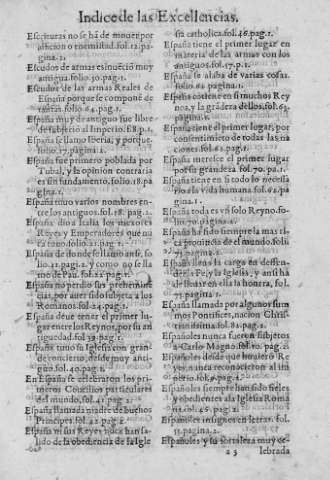 Indice de las Excellencias.
Escrituras no se há de mouer por
aficion o enemistad. fol. 12. pa-
gina. 2.
Escudos de armas es inuẽció muy
antigua. folio. 30. pag. 1.
Escudos de las armas Reales de
España porque se componẽ de
tantas. folio. 64. pag. 1.
España muy de antiguo fue libre
de subjecio al Imperio. 68. p. 1.
España se llamo Iberia, y porque.
folio. 17. pagina. 1.
España fue primero poblada por
Tubal, y la opinion contraria
es sin fundamento. folio. 18. pa
gina. 1.
España tuuo varios nombres en-
tre los antiguos. fol. 18. pag. 2.
España dio a Italia los mejores
Reyes y Emperadores que nũ
ca tuuo. folio. 21. pag. 1.
España de donde se llamo ansi. fo
lio. 21. pagi. 2. y como no se lla
mo de Pan. fol. 22. pagi. 1.
España no perdio sus preheminẽ
cias, por auer sido subjeta a los
Romanos. fol. 24. pag. 1.
España deue tener el primer lu-
gar entre los Reynos, por su an
tiguedad. fol. 39. pag. 1.
España tuuo la Iglesia con gran-
de concierto, desde muy anti-
guo. fol. 40. pag. 1.
En España se celebraron los pri-
meros Concilios particulares
del mundo. fol. 41. pag. 2.
España llamada madre de buenos
Principes. fol. 42. pag. 2.
España ni sus Reyes nũca han sa-
lido de la obediencia de la Igle
sia catholica. fol. 46. pag. 1.
España tiene el primer lugar en
materia de las armas con los
antiguos. fol. 57. p. 1.
España se alaba de varias cosas.
folio. 62. pagina. 1.
España cõtiene en si muchos Rey
nos, y la grãdeza dellos. fol. 63.
pagina. 1.
España tiene el primer lugar, por
consentimiento de todas las na
ciones. fol. 62. pag. 1.
España merece el primer lugar
por su grandeza. fol. 70. pa. 1.
España tiene en si todo lo necessa
rio a la vida humana. fol. 62. pa
gina. 1.
España toda es vn solo Reyno. fo-
lio. 70. pagina. 1.
España ha sido siempre la mas ri-
ca prouincia de el mundo. foli.
71. pagina. 1.
España tiene a cargo en defen-
der la Fe, y la Iglesia, y ansi ha
de estar en ella la honrra. fol.
75. pagina. 1.
España llamada por algunos Sum
mos Pontifices, nacion Chris-
tianissima. fol. 82. pag. 1.
Españoles nunca fueron subjetos
a Carlo Magno. fol. 10. pag. 2.
Españoles desde que huuiero Re
yes, nunca reconocieron al im
perio. fol. 69. pag. 1.
Españoles siempre han sido fieles
y obedientes a la Iglesia Roma
na. fol. 46. pag. 2.
Españoles insignes en letras. fol.
55. pagina. 2.
Españoles y su fortaleza muy ce-
a 3 lebrada